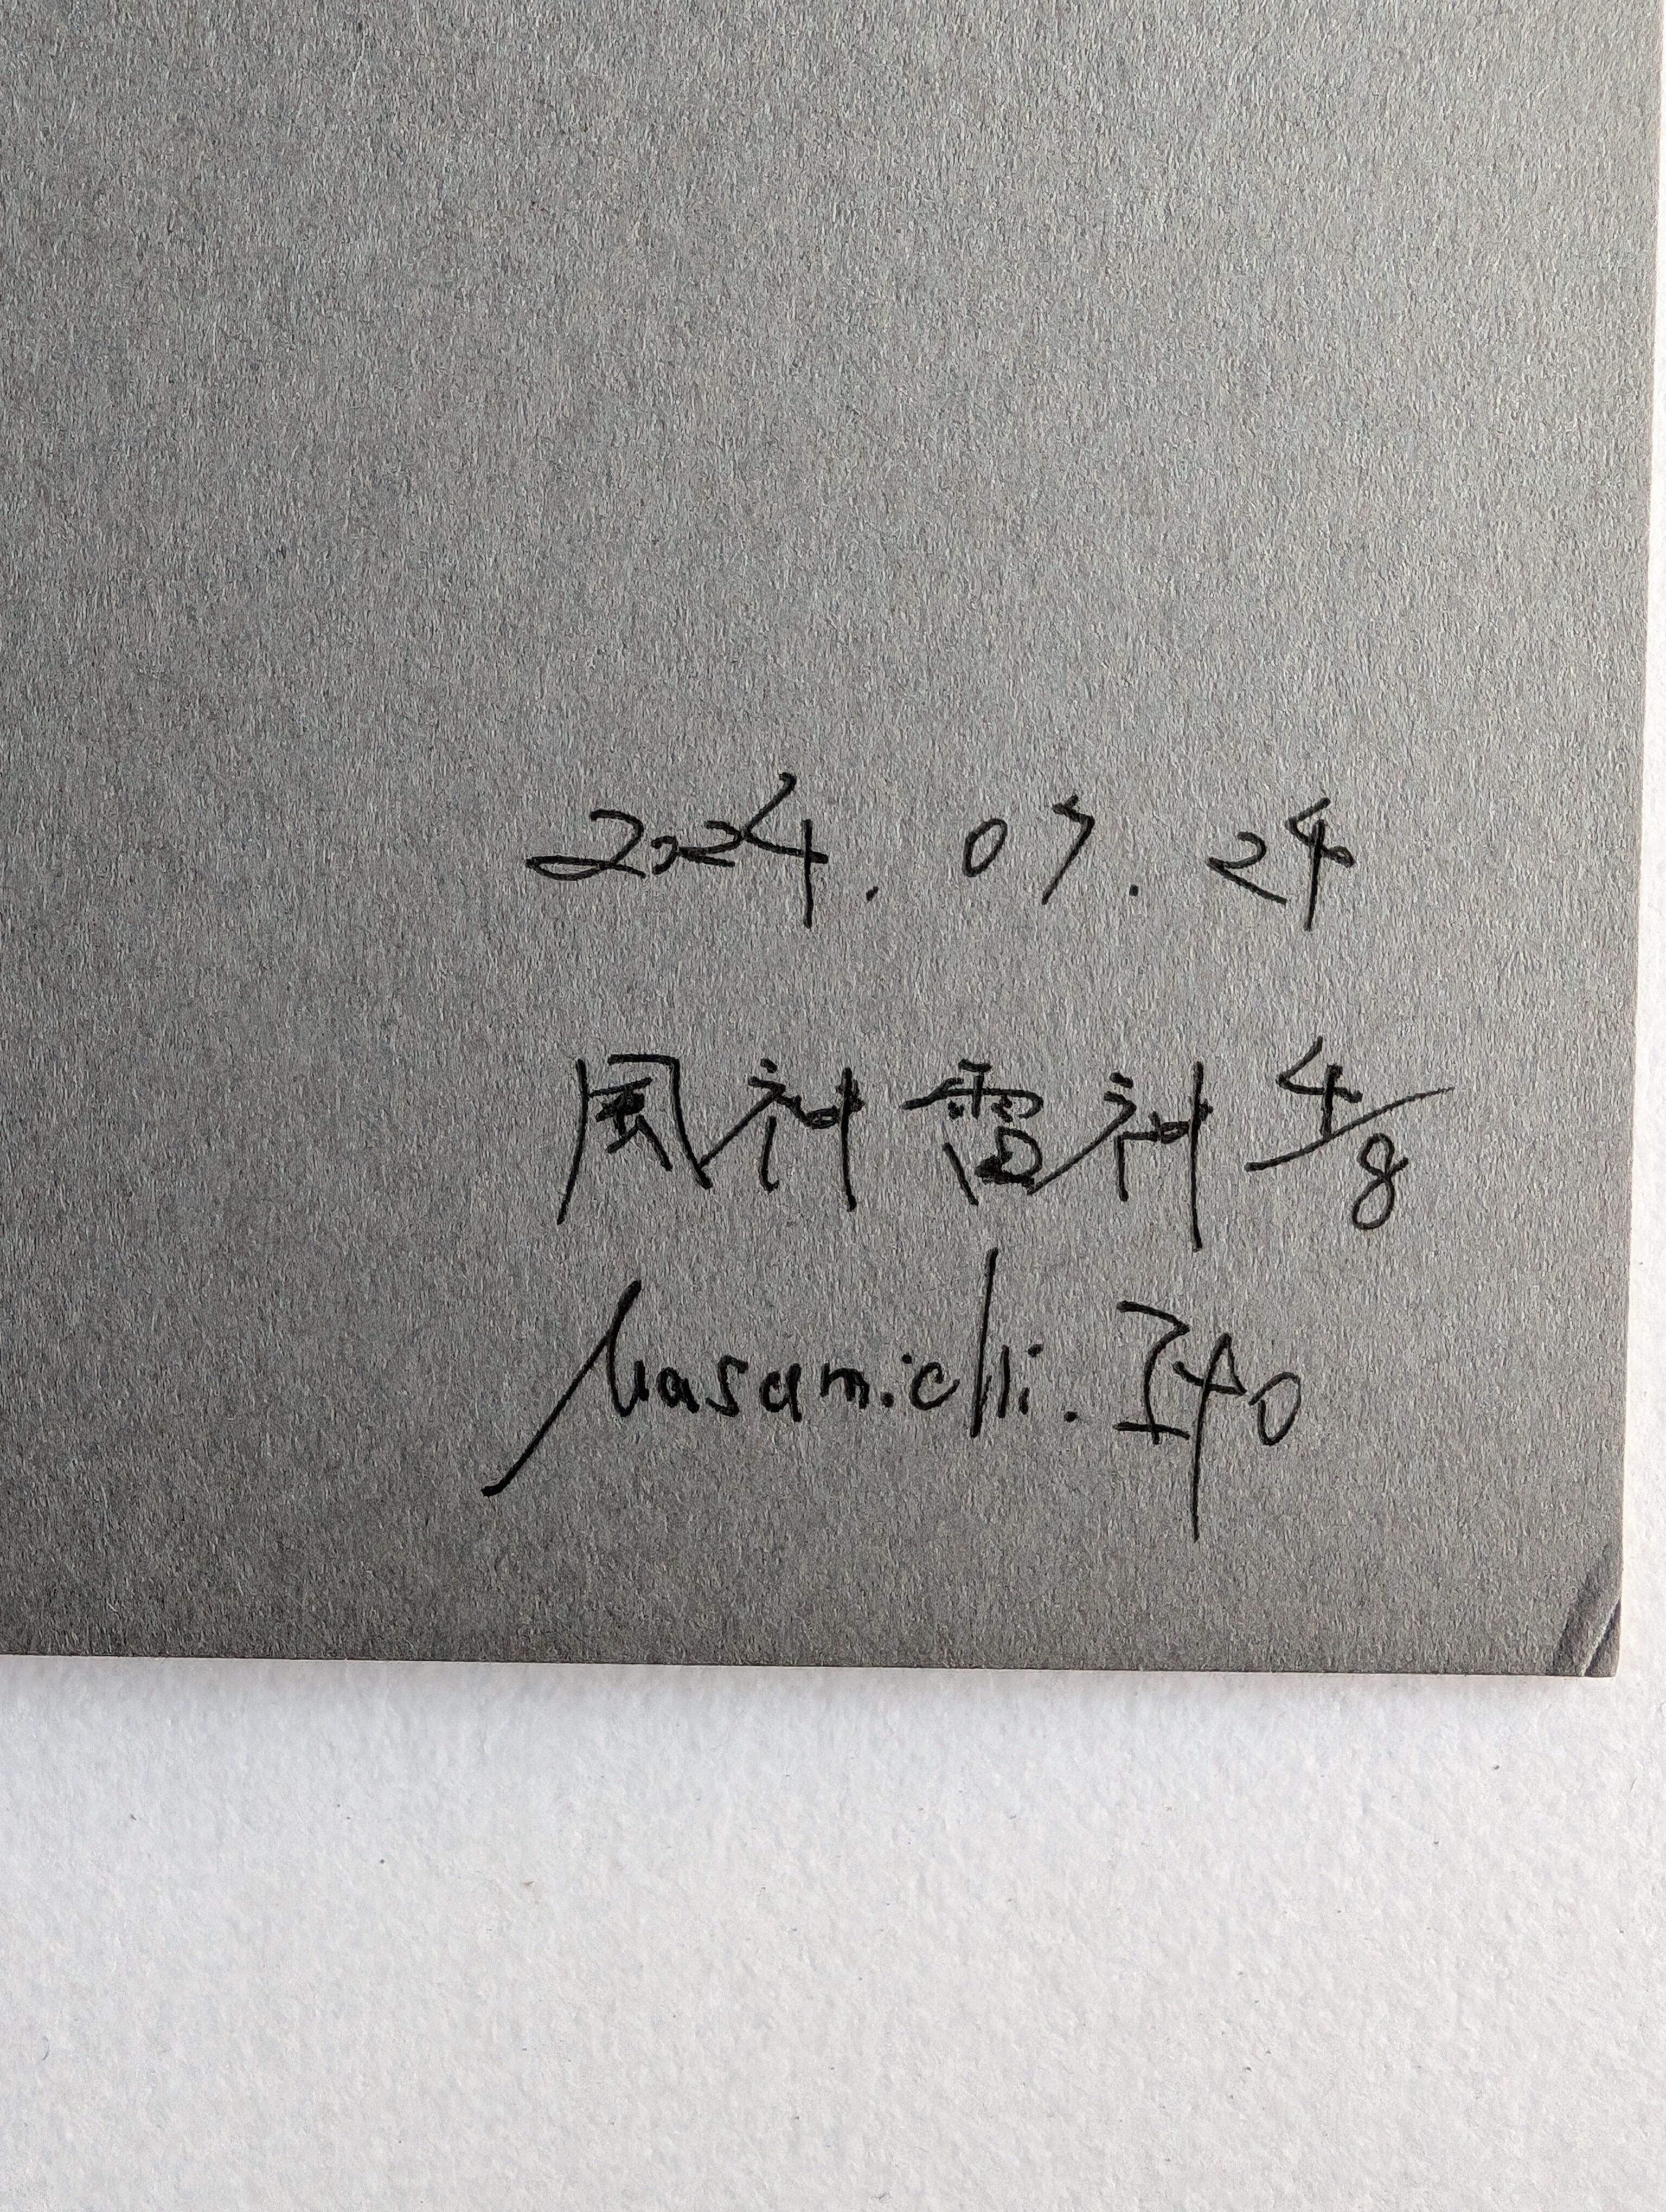 2024. 07. 24
風神雷神 4/8
Masamichi. Ito